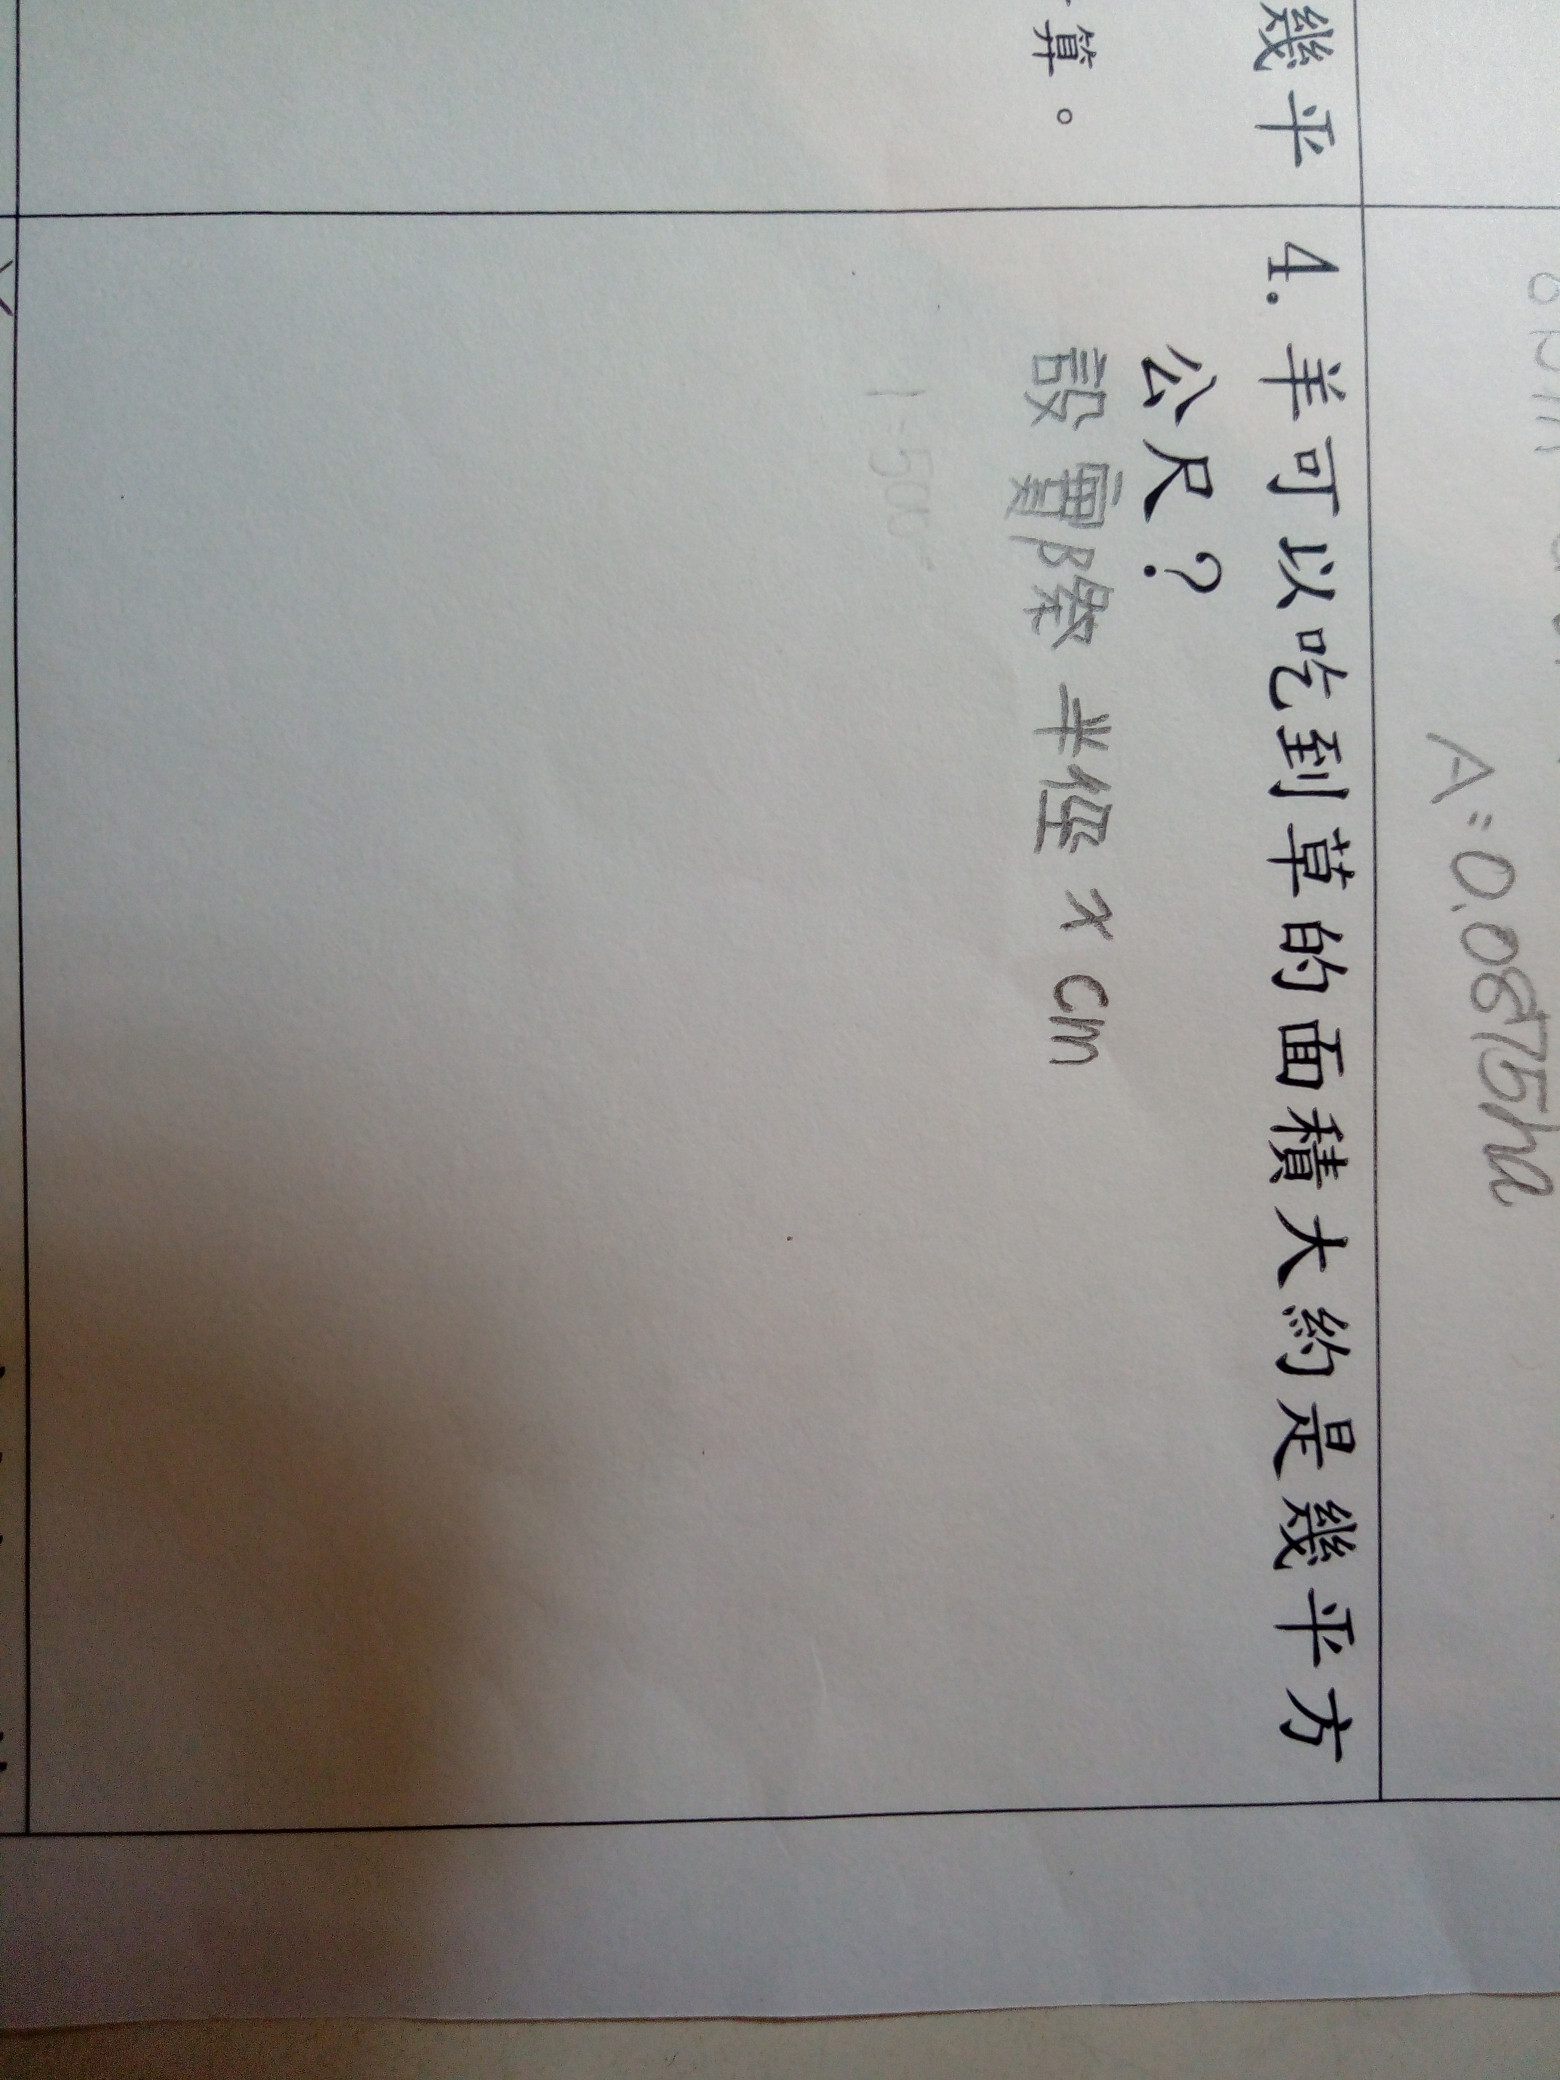 幾平
算。
A=0.0875ha
4. 羊可以吃到草的面積大約是幾平方
公尺?
設實際半徑 x cm
1-500